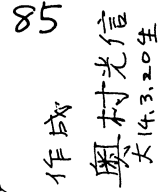 85
作成
奥村光信
大14.3.20生